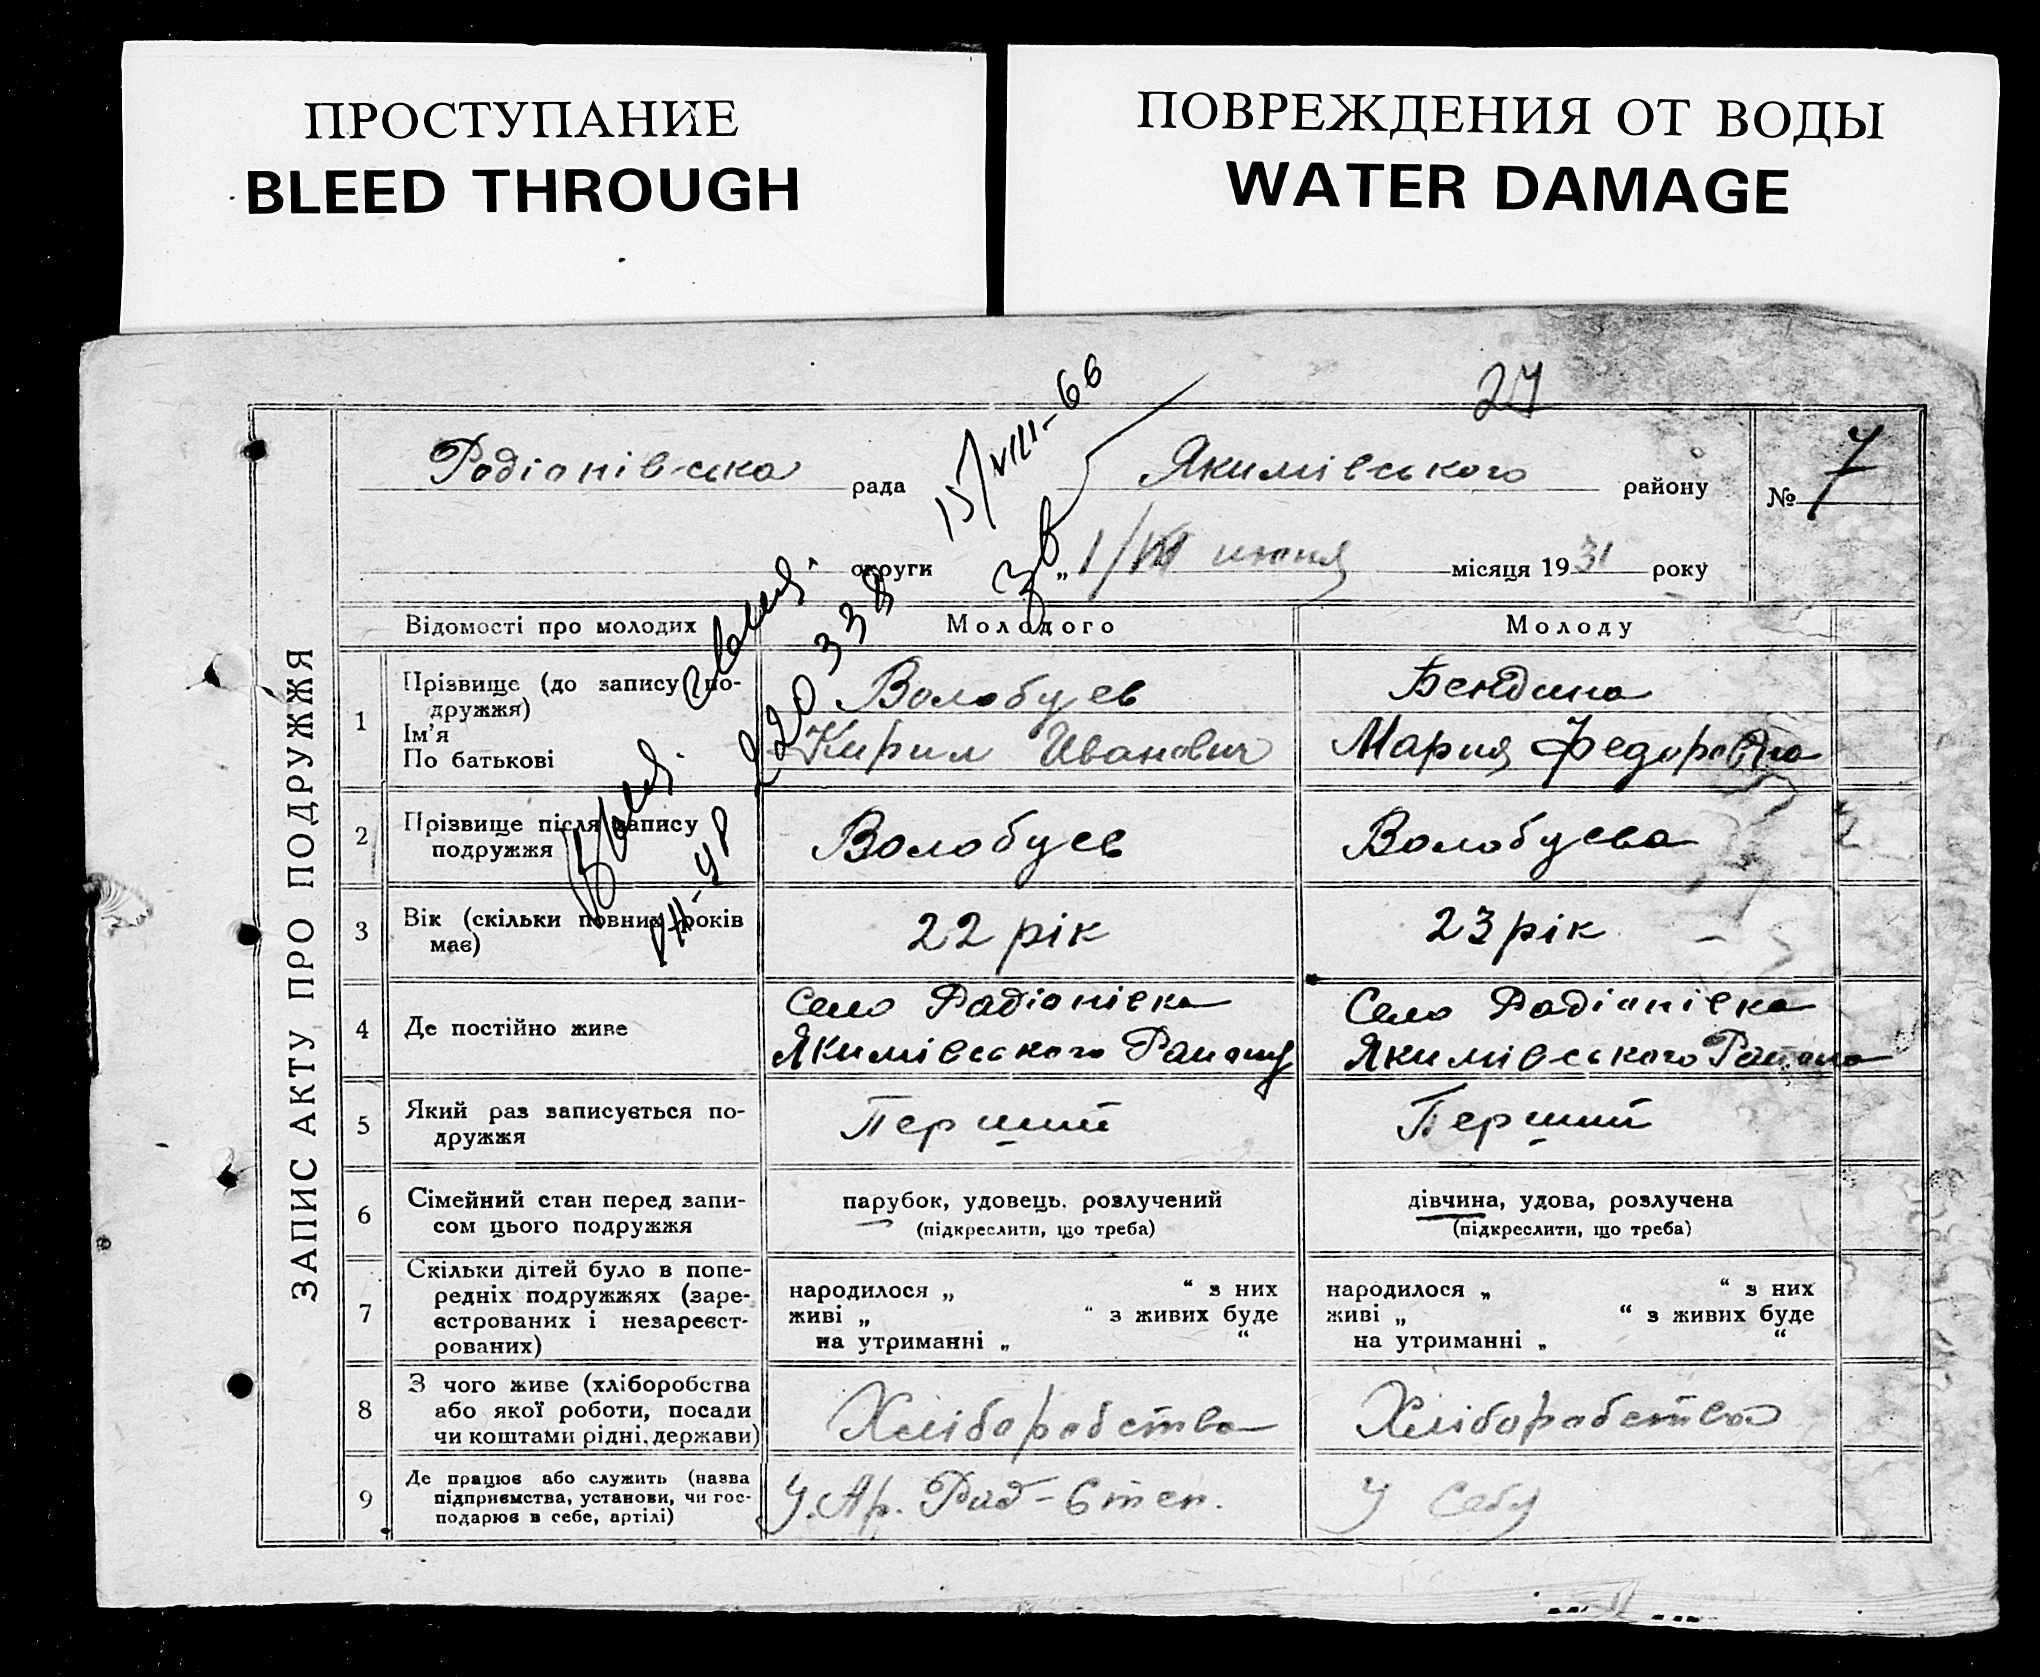 ПРОСТУПАНИЕ
BLEED THROUGH
ПОВРЕЖДЕНИЯ ОТ ВОДЫ
WATER DAMAGE
27
ЗАПИС АКТУ ПРО ПОДРУЖЖЯ
Родіонівська рада Якимівського району № 7
15/VIII-66
Зв
округи „ 1/VI июня місяця 1931 року
Відомості про молодих Молодого Молоду
1 Прізвище (до запису подружжя) Волобуев Бендина
Ім'я
По батькові Кирил Иванович Мария Федоровна
2 Прізвище після запису
подружжя Волобуев Волобуева
Выд. свид.
УР 220338
3 Вік (скільки повних років
має) 22 рік 23 рік
4 Де постійно живе Село Радіонівка Село Радіонівка
Якимівського Району Якимівського Района
5 Який раз записується по-
дружжя Перший Перший
6 Сімейний стан перед запи-
сом цього подружжя парубок, удовець, розлучений дівчина, удова, розлучена
(підкреслити, що треба) (підкреслити, що треба)
7 Скільки дітей було в попе-
редніх подружжях (заре-
єстрованих і незареєст-
рованих)
народилося „ “ з них народилося „ “ з них
живі „ “ з живих буде живі „ “ з живих буде
на утриманні „ “ на утриманні „ “
8 З чого живе (хліборобства
або якої роботи, посади
чи коштами рідні, держави) Хлібо­робства Хліборобства
9 Де працює або служить (назва
підприємства, установи, чи гос-
подарює в себе, артілі) У. Ар. Рад-Степ. У Себу